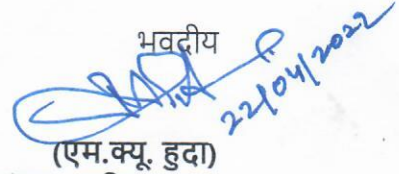 भवदीय
22/04/2022
(एम.क्यू. हुदा)